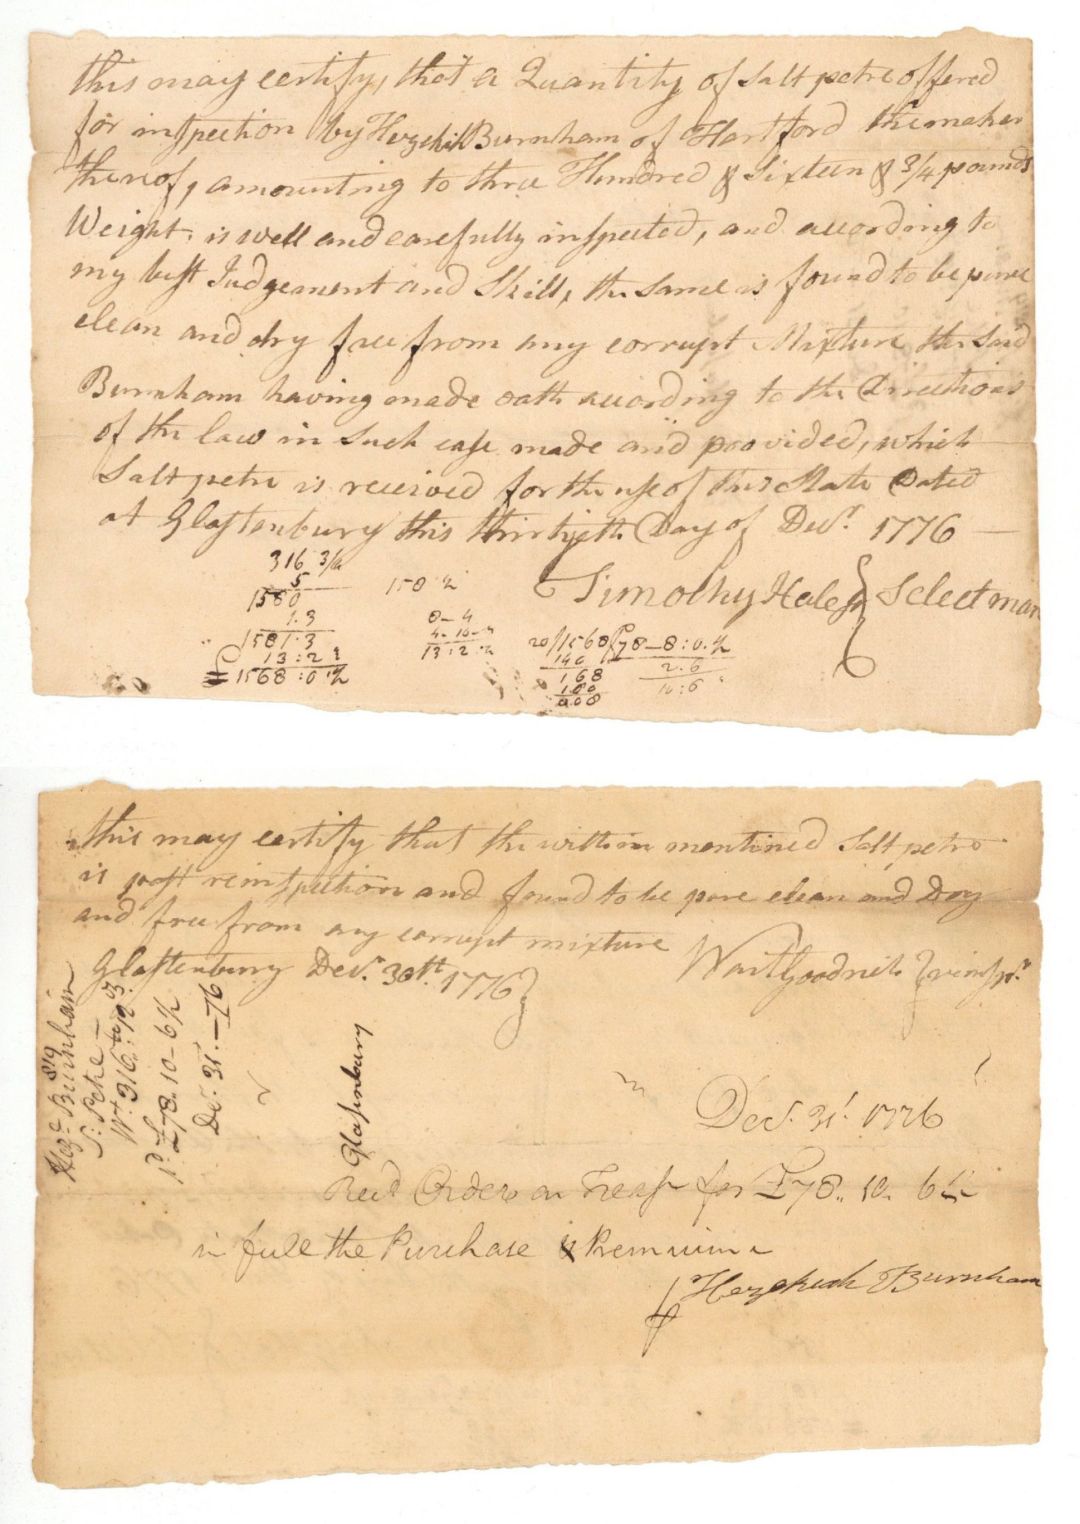 this may certify, that a Quantity of Salt petre offered
for inspection by Hezekiah Burnham of Hartford the maker
thereof, amounting to three Hundred & Sixteen & 3/4 pounds
Weight, is well and carefully inspected, and according to
my best Judgement and Skill, the same is found to be pure
clean and dry free from any corrupt Mixture the said
Burnham having made oath according to the Directions
of the law in such case made and provided, which
Salt petre is received for the use of this State Dated
at Glastenbury this thirtyeth Day of Decr. 1776
Timothy Hale Jr } Selectman
316 3/4
5
1580
1.3
1581.3
13:2
1568:0 ½
158 ½
8-4
13:2
20/1568/78-8:0.½
140
168
160
008
2:6
10:6
this may certify that the within mentioned Salt petre
is past reinspection and found to be pure clean and Dry
and free from any corrupt mixture
Glastenbury Decr. 30th. 1776}
Wait Goodrich } reinspr.
Heze. Burnham
S: Petre
Wt. 316
Pd. £78.10-6½
De: 31.-76
Glasenbury
Decr. 31st. 1776
Recd Orders on Treasr for £78.. 10.. 6½
in full the Purchase & Premium
Hezekiah Burnham